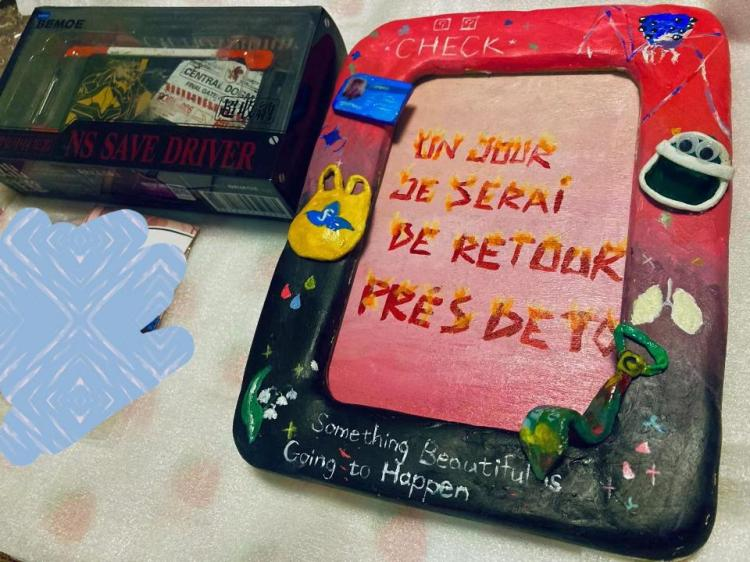 BEMOE
CENTRAL DOGMA
FINAL GATE
超收納
NS SAVE DRIVER
BEMOE
CHECK
UN JOUR
JE SERAi
DE RETOUR
PRÈS DE TO
Something Beautiful is
Going to Happen